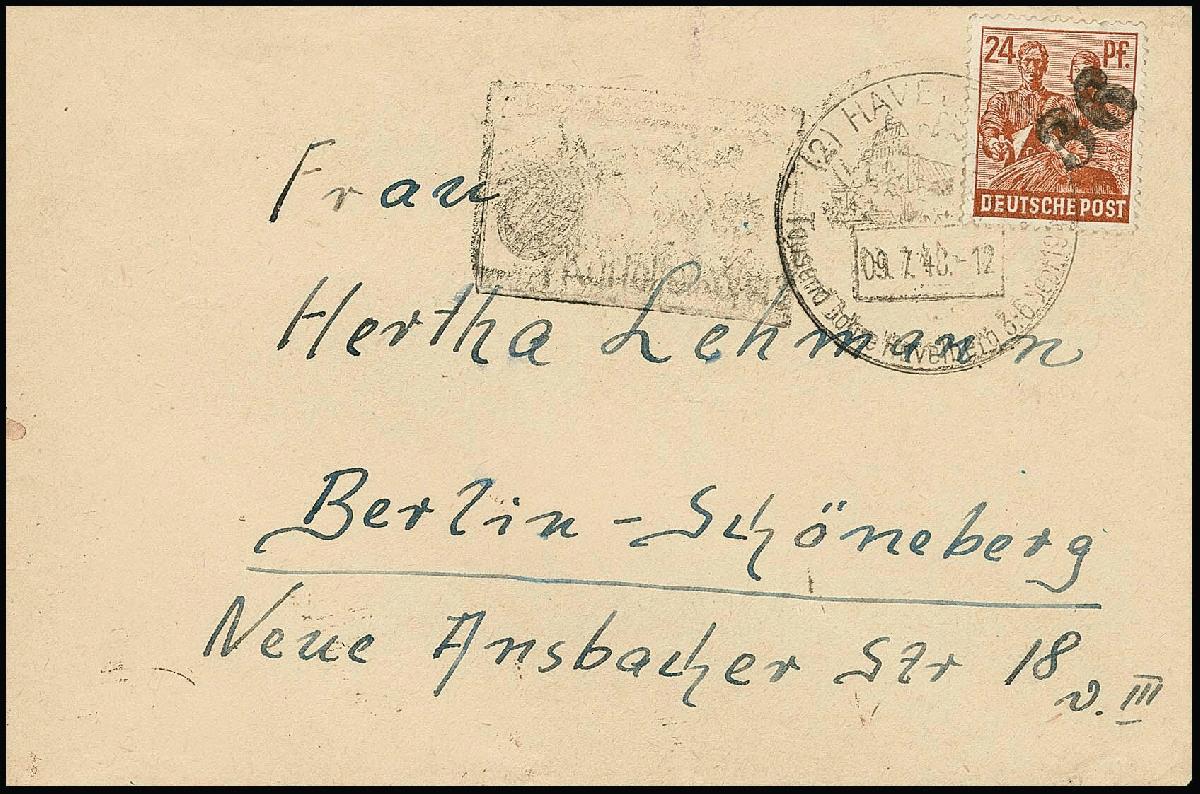 24 Pf.
36
DEUTSCHE POST
(2) HAVELB
09.7.48.-12
Tausend Jahre Havelberg 3-6.
Frau
Hertha Lehmann
Berlin-Schöneberg
Neue Ansbacher Str 18
v. III